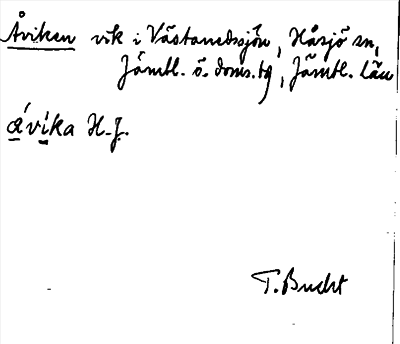 Åviken vik i Västanedssjön, Håsjö sn,
Jämtl. ö. doms.tg, Jämtl. län
ávika H-J.
T. Bucht